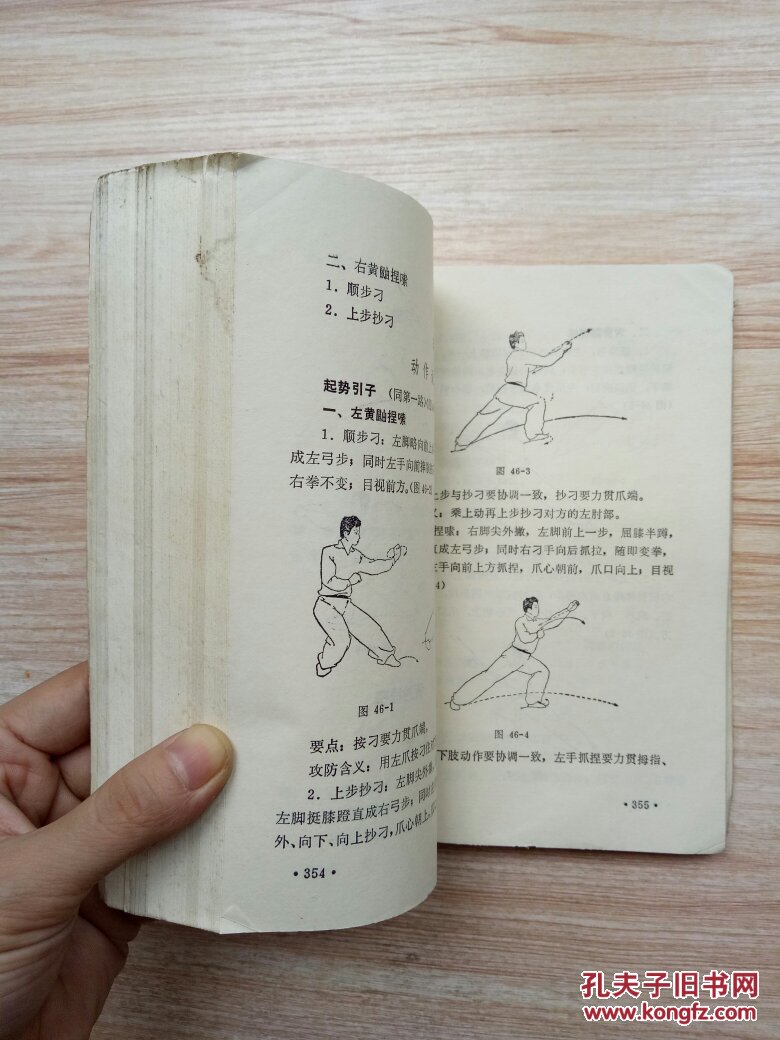 二、右黄鼬捏嗉
1．顺步刁
2．上步抄刁
动作
起势引子 （同第一路
一、左黄鼬捏嗉
1．顺步刁：左脚略向前上
成左弓步；同时左手向前
右拳不变；目视前方。(图46-
图 46-1
要点：按刁要力贯爪端。
攻防含义：用左爪按刁住
2．上步抄刁：左脚尖外撇，
左脚挺膝蹬直成右弓步；同时
外、向下、向上抄刁，爪心朝上，
• 354 •
图 46-3
上步与抄刁要协调一致，抄刁要力贯爪端。
：乘上动再上步抄刁对方的左肘部。
捏嗉：右脚尖外撇，左脚前上一步，屈膝半蹲，
直成左弓步；同时右刁手向后抓拉，随即变拳，
左手向前上方抓捏，爪心朝前，爪口向上；目视
4）
图 46-4
下肢动作要协调一致，左手抓捏要力贯拇指、
• 355 •
孔夫子旧书网
www.kongfz.com